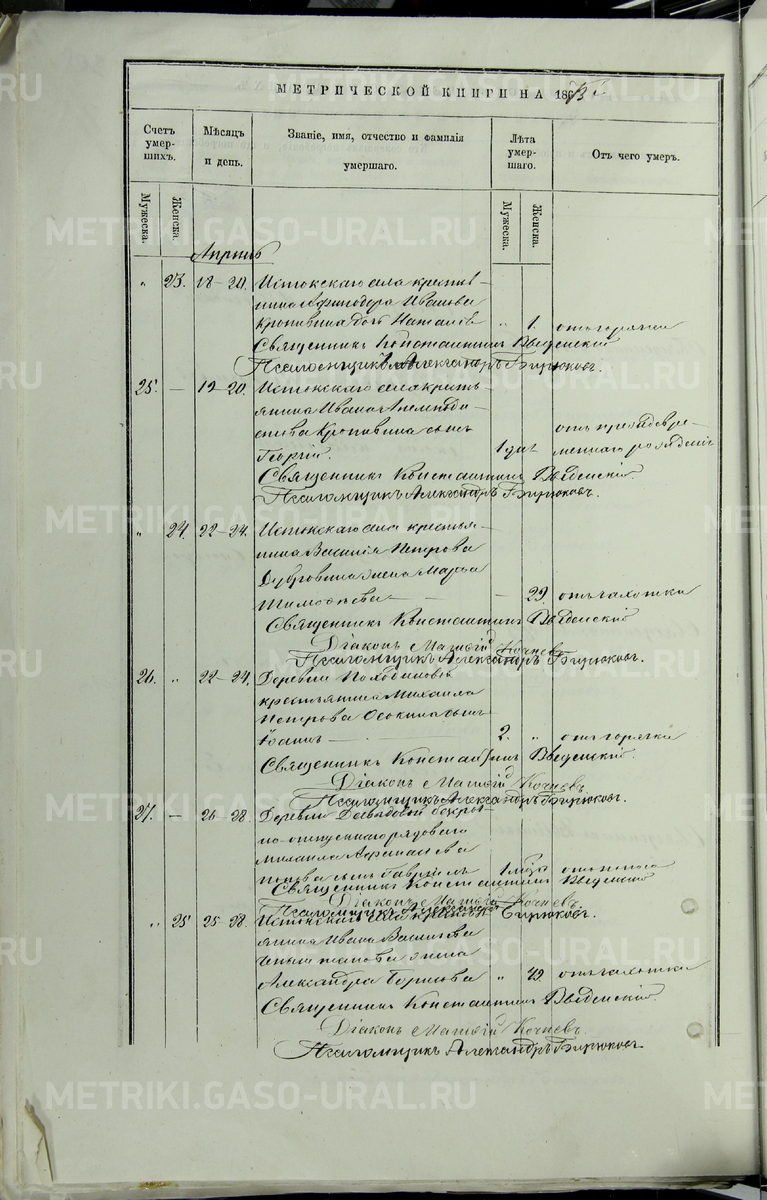 МЕТРИЧЕСКОЙ КНИГИ НА 186
Счетъ умер-шихъ.
Мѣсяцъ и день.
Званіе, имя, отчество и фамилія умершаго.
Лѣта умер-шаго.
Отъ чего умеръ.
Мужеска.
Женска.
Мужеска.
Женска.
Апрель
" 23. 18-20. Истокскаго села крестья-
нина Ивана
дочь Наталья " 1. отъ горячки
Священникъ Константинъ Введенскій
Псаломщикъ Александръ Бирюковъ.
25. — 19-20. Истокскаго села кресть-
янина Ивана
сынъ
Георгій. 1 дня отъ преждевре-
меннаго рожденія
Священникъ Константинъ Введенскій
Псаломщикъ Александръ Бирюковъ.
" 24. 22-24. Истокскаго села крестья-
нина Василія Петрова
Дубровина жена Марья
Тимофѣева — 29. отъ чахотки
Священникъ Константинъ Введенскій
Діаконъ Матѳій Кочневъ
Псаломщикъ Александръ Бирюковъ.
26. " 22-24. Деревни
крестьянина Михаила
Петрова Осокина сынъ
Іоаннъ — 2. " отъ горячки
Священникъ Константинъ Введенскій.
Діаконъ Матѳій Кочневъ
Псаломщикъ Александръ Бирюковъ.
27. — 26-28. Деревни
рядоваго
Михаила
сынъ Гавріилъ 1 отъ поноса
Священникъ Константинъ Введенскій
Діаконъ Матѳій Кочневъ.
Псаломщикъ Александръ Бирюковъ.
" 25 25-28. Истокскаго села кресть-
янина Ивана Васильева
жена
Александра Борисова " 49. отъ чахотки
Священникъ Константинъ Введенскій.
Діаконъ Матѳій Кочневъ.
Псаломщикъ Александръ Бирюковъ
METRIKI.GASO-URAL.RU